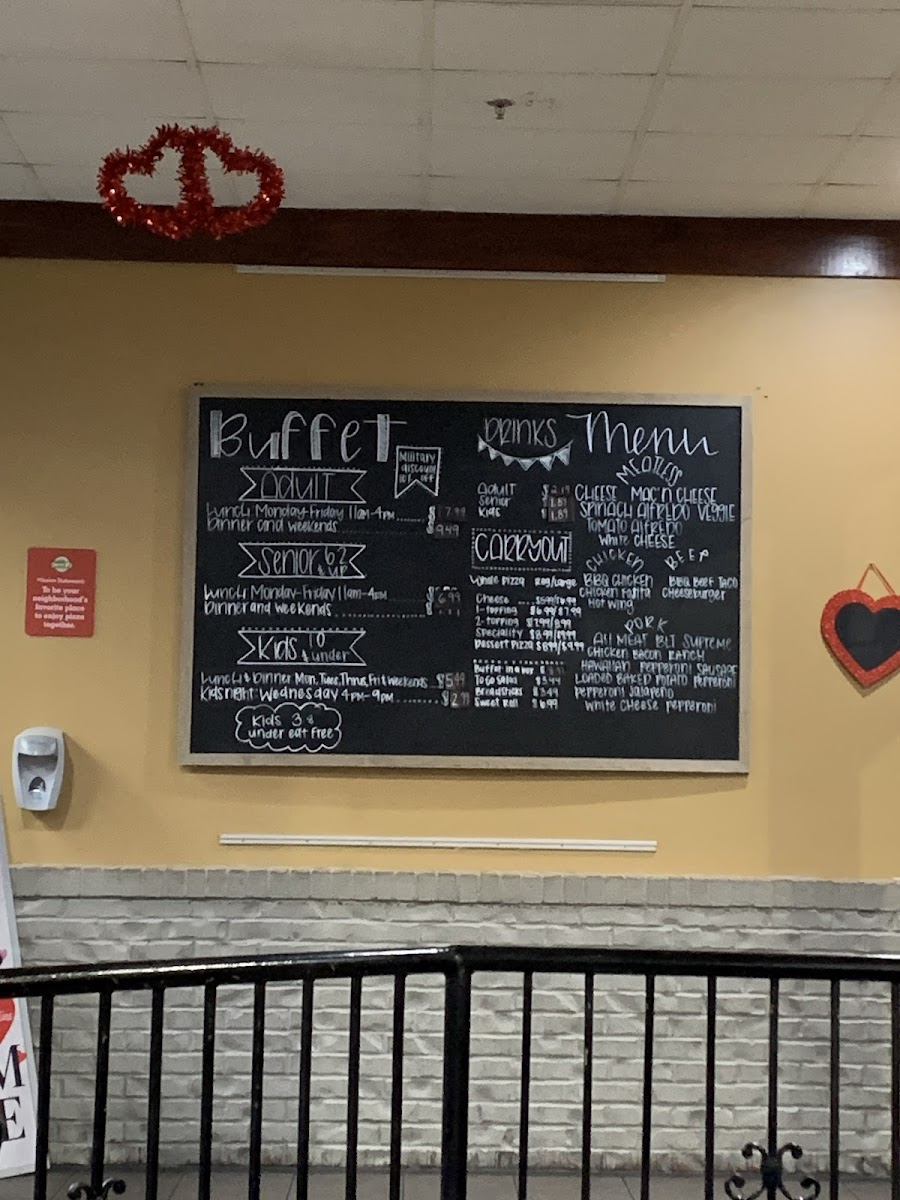 Buffet
Military
discount
10% off
Adult
Lunch: Monday-Friday 11am-4pm ...... 7.99
Dinner and weekends ...... 9.49
Senior 62
& up
Lunch: Monday-Friday 11am-4pm ...... 6.99
Dinner and weekends
Kids 10
& under
Lunch & Dinner Mon, Tues, Thrus, Fri & weekends $5.49
Kids night: Wednesday 4pm-9pm ...... $2.99
Kids 3 &
under eat free
DRINKS
Adult $2.19
Senior 1.89
Kids $1.89
CARRYOUT
Whole Pizza Reg/Large
Cheese ..... $5.99/$6.99
1-topping $6.99/$7.99
2-topping $7.99/8.99
Speciality $8.99/$9.99
Dessert Pizza $8.99/$9.99
Buffet in a box
To Go Salad $3.49
Breadsticks $3.49
Sweet Roll $6.99
Menu
MEATLESS
CHEESE MAC'N CHEESE
SPINACH ALFREDO VEGGIE
TOMATO ALFREDO
White CHEESE
CHICKEN
BBQ CHICKEN
CHICKEN FAJITA
HOT WING
BEEF
BBQ BEEF TACO
CHEESEBURGER
PORK
All MEAT BLT SUPREME
CHICKEN BACON RANCH
HAWAIIAN PEPPERONI SAUSAGE
LOADED BAKED POTATO PEPPERONI
PEPPERONI JALAPEÑO
White CHEESE PEPPERONI
Mission Statement:
To be your
neighborhood's
favorite place
to enjoy pizza
together.
M
E